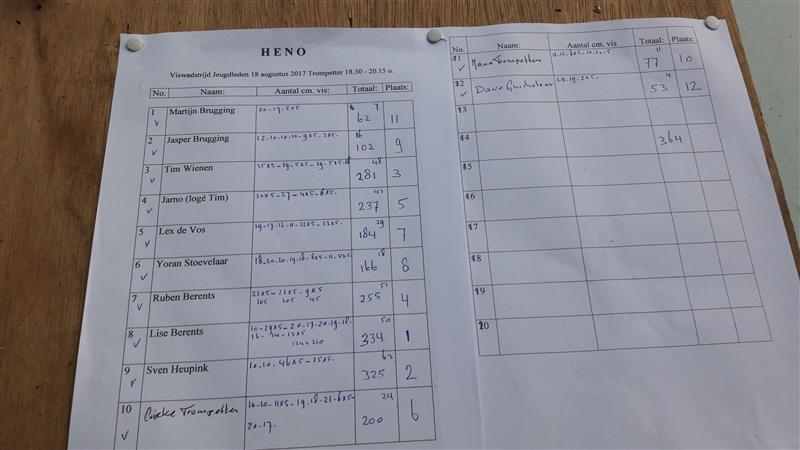 HENO
Viswedstrijd Jeugdleden 18 augustus 2017 Trompetter 18.30 - 20.15 u.
No. Naam: Aantal cm. vis Totaal: Plaats:
1 Martijn Brugging 20-17-5x5 7 62 11
2 Jasper Brugging 12-10-10-10-9x5-3x5- 16 102 9
3 Tim Wienen 35x5-19-5x5-19-5x5-18 48 281 3
4 Jarno (logé Tim) 30x5-27-4x5-8x5- 43 237 5
5 Lex de Vos 19-17-12-11-12x5-13x5- 29 184 7
6 Yoran Stoevelaar 18-20-20-19-18-8x5-11-4x5 18 166 8
7 Ruben Berents 21x5-21x5-9x5 51 255 4
105 105 45
8 Lise Berents 10-29x5-20-17-20-19-18- 50 334 1
16-14-13x5
9 Sven Heupink 10-10-46x5-15x5- 63 325 2
10 Trompetter 10-10-11x5-19-18-21-6x5- 24 200 6
20-17-
No. Naam: Aantal cm. vis Totaal: Plaats:
11 Trompetter 11 77 10
12 Dave 24-19-2x5- 4 53 12
13
14 364
15
16
17
18
19
20